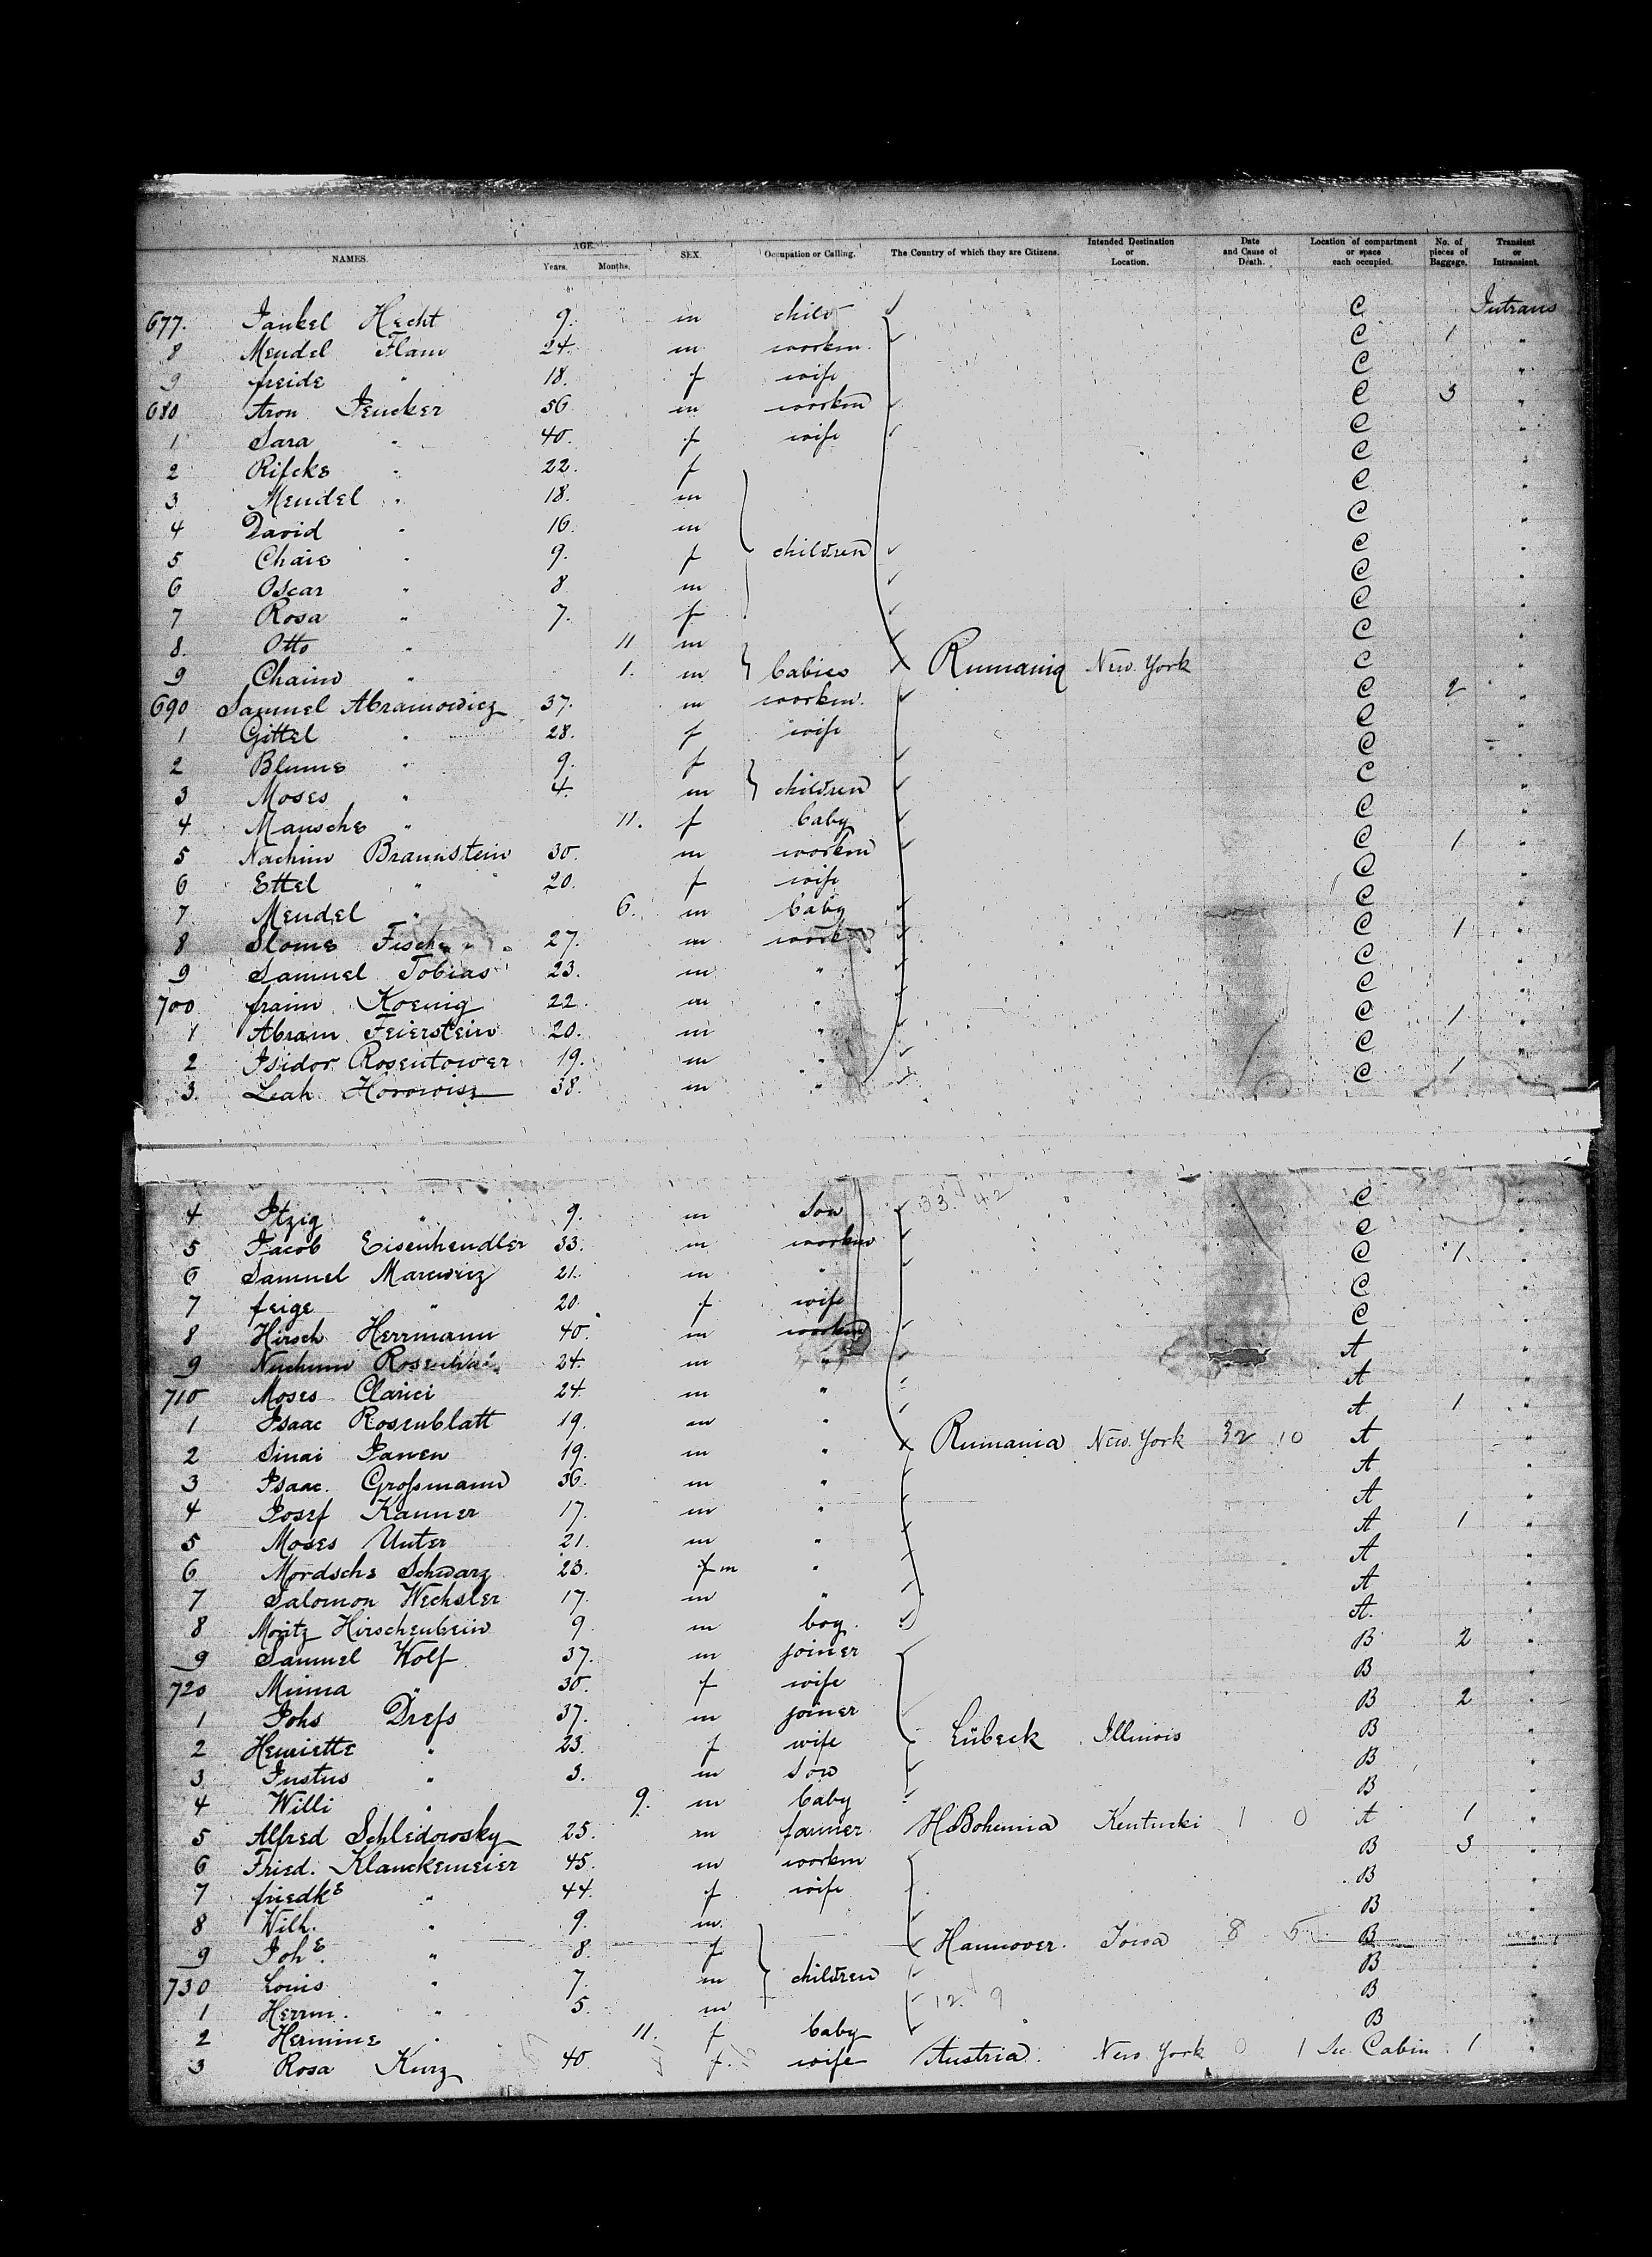 NAMES. AGE. Years. Months. SEX. Occupation or Calling. The Country of which they are Citizens. Intended Destination or Location. Date and Cause of Death. Location of compartment or space each occupied. No. of pieces of Baggage. Transient or Intransient.
677. Jankel Hecht 9. m child C Intrans
8 Mendel Flam 24. m workm. C 1 "
9 freide " 18. f wife C "
680 Aron Jencker 56 m workm C 3 "
1 Sara " 40. f wife C "
2 Rifcke " 22. f C "
3 Mendel " 18. m C "
4 David " 16. m C "
5 Chaie " 9. f children C "
6 Oscar " 8 m C "
7 Rosa " 7. f C "
8. Otto " 11 m C "
9 Chaim " 1. m babies Rumania New York C "
690 Samuel Abramowicz 37. m workm. C 2 "
1 Gittel " 28. f wife C "
2 Blume " 9. f C "
3 Moses " 4. m children C "
4 Mansche " 11. f baby C "
5 Nachim Braunstein 30. m workm C 1 "
6 Ettel " 20. f wife C "
7 Mendel " 6. m baby C "
8 Slome 27. m C 1 "
9 Samuel Tobias 23. m " C "
700 fraim Koenig 22. m " C "
1 Abram Feierstein 20. m " C 1 "
2 Isidor Rosentower 19. m " C "
3. Leah Horowisz 38. m " C 1 "
33. 42
4 Itzig " 9. m son C "
5 Jacob Eisenhendler 33. m workm C "
6 Samuel Marcwicz 21. m " C 1 "
7 feige " 20. f wife C "
8 Hirsch Herrmann 40. m workm C "
9 Nuchum 24. m " A "
710 Moses Clarici 24 m " A "
1 Isaac Rosenblatt 19. m " A 1 "
2 Sinai Janen 19. m " Rumania New York 32 10 A "
3 Isaac Großmann 36. m " A "
4 Josef Kanner 17. m " A "
5 Moses Unter 21. m " A 1 "
6 Mordsche Schwarz 23. f m " A "
7 Salomon Wechsler 17. m " A "
8 Moritz Hirschenbein 9. m boy. A. "
9 Samuel Wolf 37. m joiner B 2 "
720 Minna " 30. f wife B "
1 Johs Dreß 37. m joiner B 2 "
2 Henriette " 23. f wife Lübeck Illinois B "
3 Justus " 3. m son B "
4 Willi " 9. m baby B "
5 Alfred Schledowsky 25. m farmer Bohemia Kentucki 1 0 A 1 "
6 Fried. Klanckemeier 45. m workm B 3 "
7 friedke " 44. f wife B "
8 Wilh. " 9. m B "
9 Johe. " 8. f Hannover. Iowa 8 5 B "
730 Louis " 7. m children B "
1 Herrm. " 5. m 12. 9 B "
2 Hermine " 11. f baby B "
3 Rosa Kurz 40. f. wife Austria. New York 0 1 Sec. Cabin 1 "